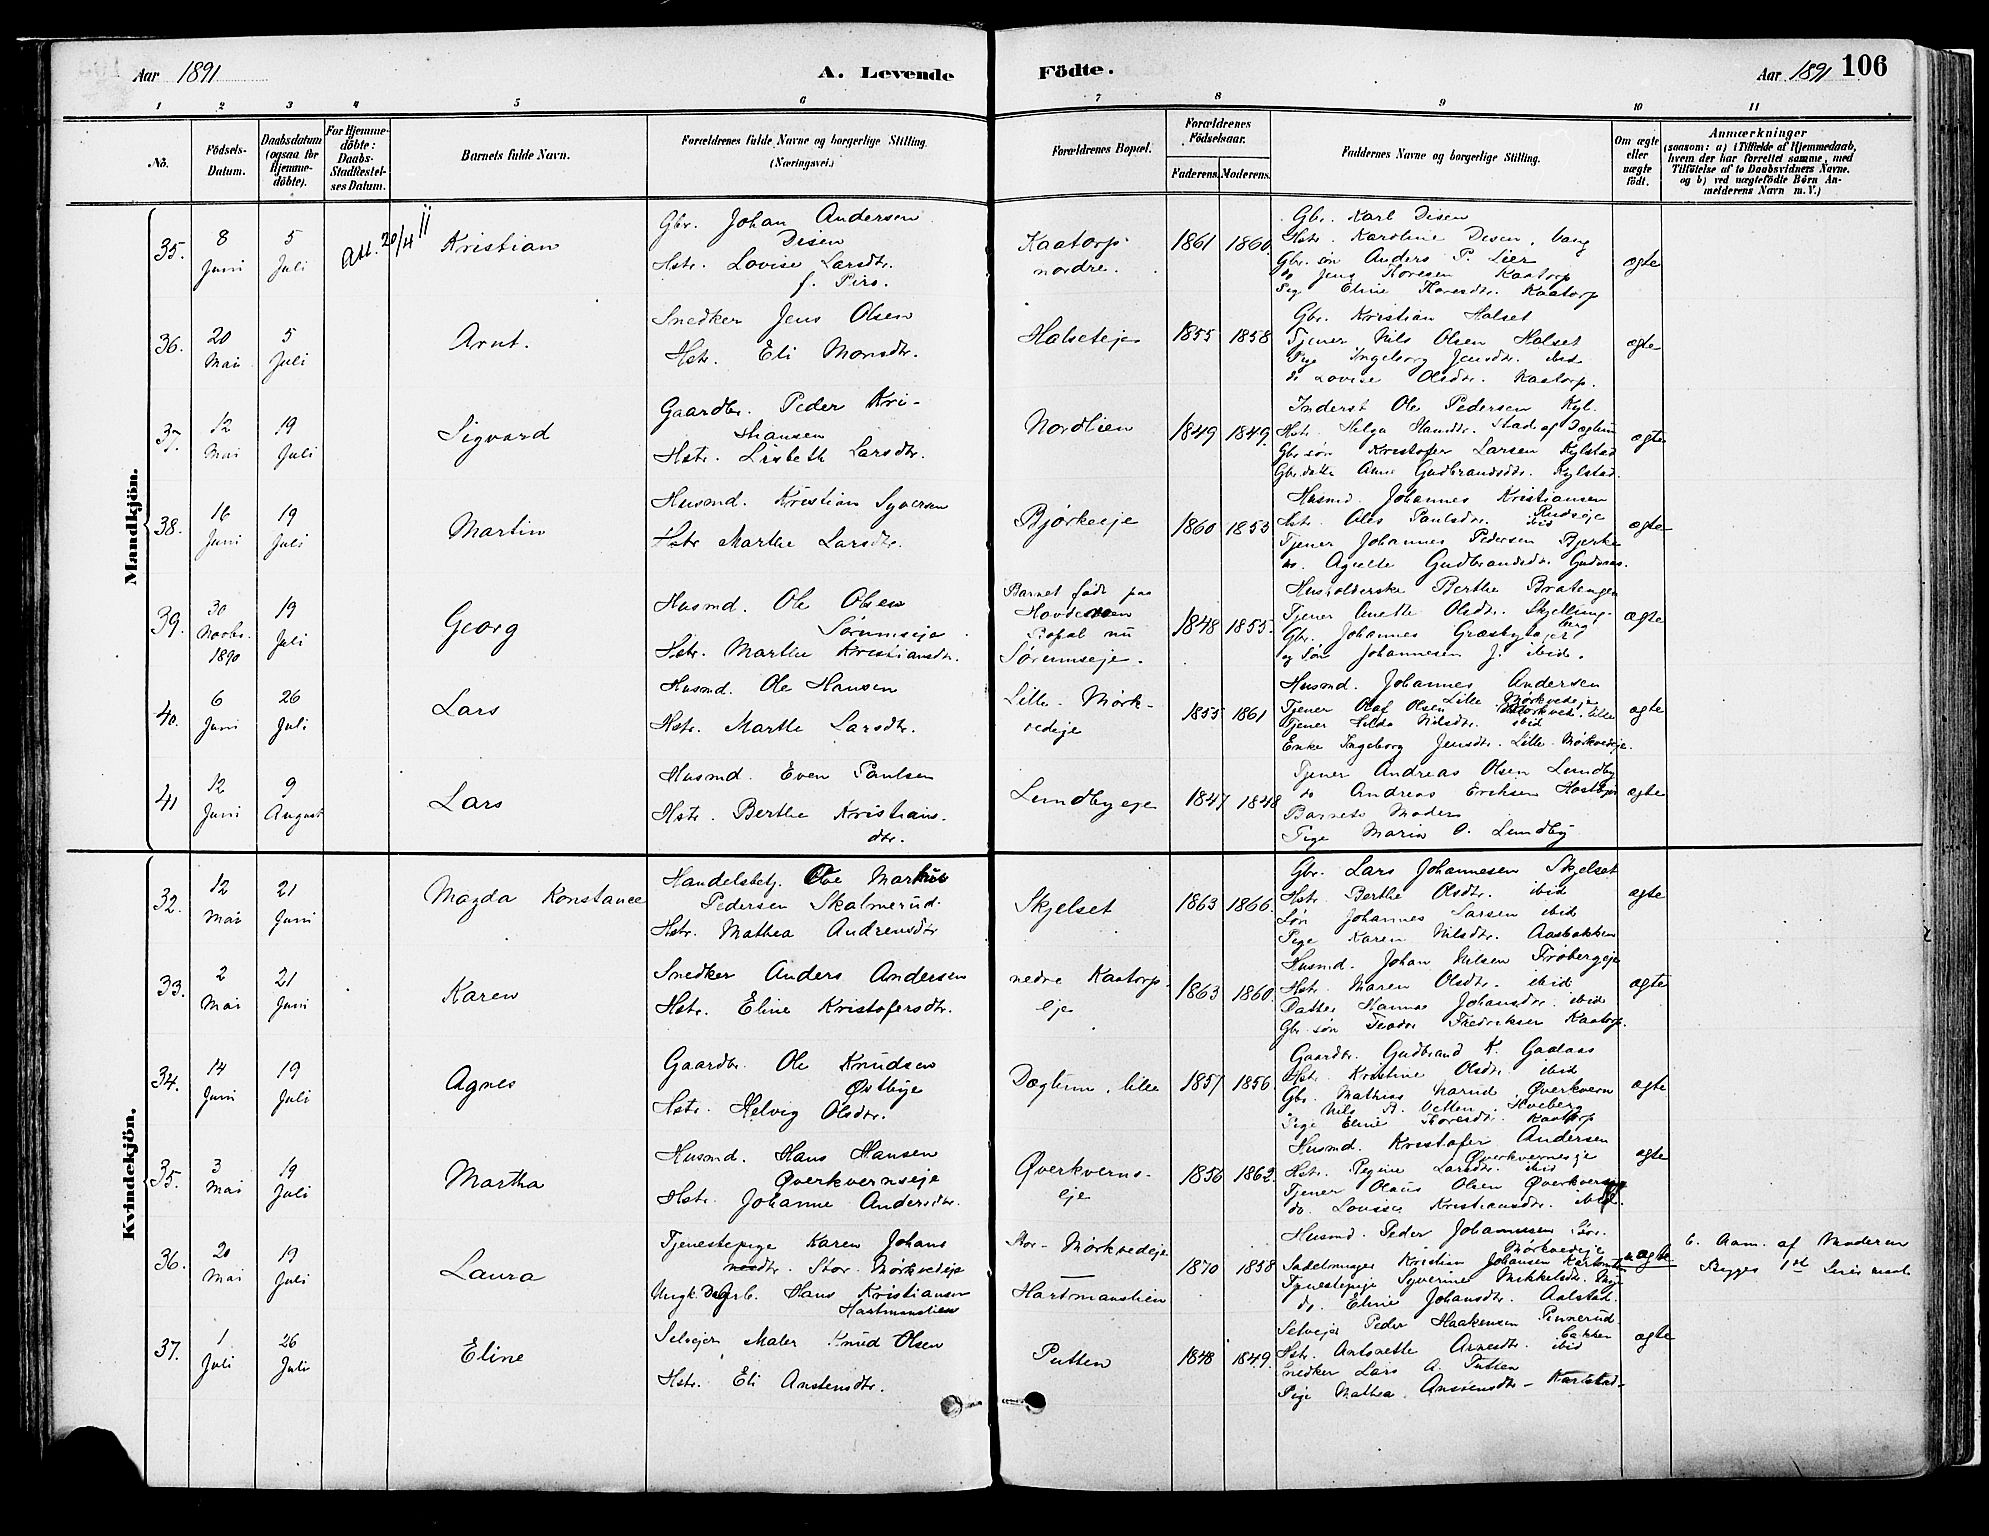 Aar 1891
A. Levende
Födte.
Aar 1891
106
1 2 3 4 5 6 7 8 9 10 11
No.
Födsels-Datum.
Daabsdatum (ogsaa for Hjemmedöbte).
For Hjemmedöbte: Daabs-Stadfæstelses Datum.
Barnets fulde Navn.
Forældrenes fulde Navne og borgerlige Stilling. (Næringsvei.)
Forældrenes Bopæl.
Forældrenes Födselsaar.
Faderens. Moderens.
Faddernes Navne og borgerlige Stilling.
Om ægte eller uægte födt.
Anmærkninger
(saasom: a) i Tilfælde af Hjemmedaab,
hvem der har forrettet samme, med
Tilföielse af to Daabsvidners Navne.
og b) ved uægtefödte Börn Anmelderens Navn m. V.)
Mandkjön.
35. 8 Juni 5 Juli Att. 20/4 11 Kristian
Gbr. Johan Andersen
Disen
Hstr. Lovise Larsdtr.
Kaatorp nordre. 1861 1860.
Gbr. Karl Disen
Hstr. Karoline Disen, Vang
Gbr. søn Anders P. Lier
do Jens Toresen Kaatorp
Pige Eline Toresdtr. Kaatorp
ægte
36. 20 Mai 5 Juli Arnt.
Snedker Jens Olsen
Hstr. Eli Monsdtr.
Halseteje 1855 1858
Gbr. Kristian Halset
Tjener Nils Olsen Halset
Pige Ingeborg Jensdtr. ibid
do Lovise Olsdtr. Kaatorp.
ægte
37. 12 Mai 19 Juli Sigvard
Gaardbr. Peder Kri-
stiansen
Hstr. Lisbeth Larsdtr.
Nordlien 1849 1849.
Inderst Ole Pedersen Kyl.
Hstr. Helga Hansdtr. Stade af Dæglum
Gbr. søn Kristofer Larsen Kylstad
Gbr. datter Anne Gudbrandsdtr. Kylstad.
ægte
38. 16 Juni 19 Juli Martin
Husmd. Kristian Syversen
Hstr Marthe Larsdtr.
Bjørkeeje 1860 1853
Husmd. Johannes Kristiansen
Rudseje
Hstr. Oles Paulsdtr. ibid
Tjener Johannes Pedersen Bjerke
do. Agnette Gudbrandsdtr.
ægte
39. 30 Novbr. 1890 19 Juli Georg
Husmd. Ole Olsen
Sørumseje
Hstr. Marthe Kristiansdtr.
Barnet født paa
Bopæl nu
Sørumseje. 1848 1855.
Husholderske Berthe Bratengen
Tjener Anette Olsdtr. Skjelling-
berg
Gbr. Johannes Græsbyhaget
og Søn Johannesen j. ibid.
ægte
40. 6 Juni 26 Juli Lars
Husmd. Ole Hansen
Hstr. Marthe Larsdtr.
Lille-Mørk-
vedeje 1855 1861
Husmd. Johannes Andersen
Lille Mørkvedeje
Tjener Olaf Olsen Mørkved lille
Tjener Hilda Nilsdtr. ibid
Enke Ingeborg Jensdtr. Lille-Mørkvedeje.
ægte
41 12 Juni 9 August Lars
Husmd. Even Paulsen
Hstr. Berthe Kristians-
dtr.
Lundbyeje 1847 1848
Tjener Andreas Olsen Lundby
do Andreas Eriksen
Barnets Moder
Pige Maria O. Lundby
ægte
Kvindekjön.
32. 12 Mai 21 Juni Magda Konstance
Handelsbetj. Ole Markus
Pedersen Skalmerud.
Hstr. Mathea Andreasdtr
Skjelset 1863 1866.
Gbr. Lars Johannesen Skjelset
Hstr. Berthe Olsdtr. ibid
Søn Johannes Larsen ibid
Pige Karen Nilsdtr. Aasbakken
ægte
33. 2 Mai 21 Juni Karen
Snedker Anders Andersen
Hstr. Eline Kristofersdtr.
nedre Kaatorp-
eje 1863 1860.
Husmd. Johan Nilsen Frøbergeje
Hstr. Maren Olsdtr. ibid
Datter Hanna Johansdtr. ibid
Gbr. søn Teodor Fredriksen Kaatorp.
ægte
34. 14 Juni 19 Juli Agnes
Gaardbr. Ole Knudsen
Østbye
Hstr. Helvig Olsdtr.
Dæglum, lille 1857 1856.
Gaardbr. Gudbrand K. Gaalaas
Hstr. Kristine Olsdtr. ibid
Gbr. Mathias Narud Øverkvern
Nils A. Vetten Hveberg
Pige Eline Toresdtr. Kaatorp
ægte
35. 3 Mai 19 Juli Martha
Husmd. Hans Hansen
Øverkvernseje
Hstr. Johanne Andersdtr.
Øverkverns-
eje 1856 1862.
Husmd. Kristofer Andersen
Øverkvernseje
Hstr. Pegine Larsdtr. ibid
Tjener Olaus Olsen Øverkvern
do. Lovise Kristiansdtr. ibid.
ægte
36. 20 Mai 19 Juli Laura
Tjenestepige Karen Johans
dtr. Stor-Mørkvedeje
Ungk. Dagarb. Hans Kristiansen
Hartmanslien
Stor-Mørkvedeje
Hartmanslien 1870 1858
Husmd. Peder Johannesen Stor-
Mørkvedeje
Sadelmager Kristian Johansen
Tjenestepige Syverine Mikkelsdtr.
do. Eline Johansdtr. Aalstad.
uægte
b. Anm. af Moderen
Begges 1ste Leiermaal
37. 1 Juli 26 Juli Eline
Selvejer Maler Knud Olsen
Hstr. Eli Anstensdtr.
Putten 1848 1849.
Selvejer Peder Haakensen Finnerud
bakken
Hstr. Antonette Arnesdtr. ibid
Snedker Lars A. Putten
Pige Mathea Anstensdtr. Karlstad.
ægte